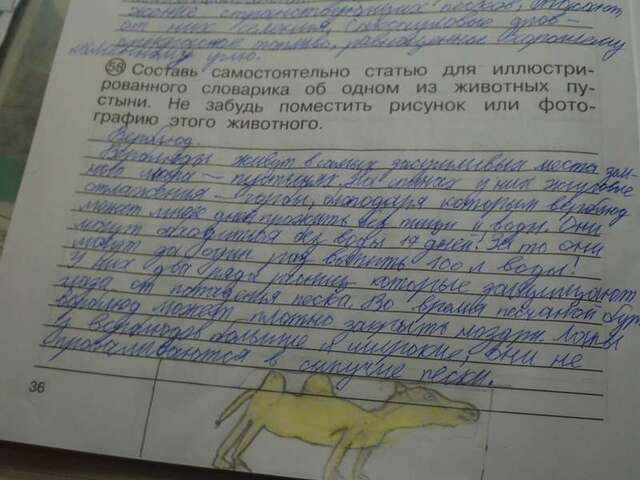 жание странствующих песков, отрезают
от них селения,
прекрасное топливо, равноценное хорошему
каменному углю.
58 Составь самостоятельно статью для иллюстри-
рованного словарика об одном из животных пу-
стыни. Не забудь поместить рисунок или фото-
графию этого животного.
Верблюд.
Верблюды живут в самых засушливых места зем-
ного шара – пустынях. На спинах у них жировые
отложения – горбы, благодаря которым верблюд
может много дней прожить без пищи и воды. Они
могут обходиться без воды 14 дней! За то они
могут за один раз выпить 100 л воды!
У них два ряда ресниц, которые защищают
глаза от попадания песка. Во время песчаной бури
верблюд может плотно закрыть ноздри. Лапы
у верблюдов большие и широкие, они не
проваливаются в сыпучие пески.
36